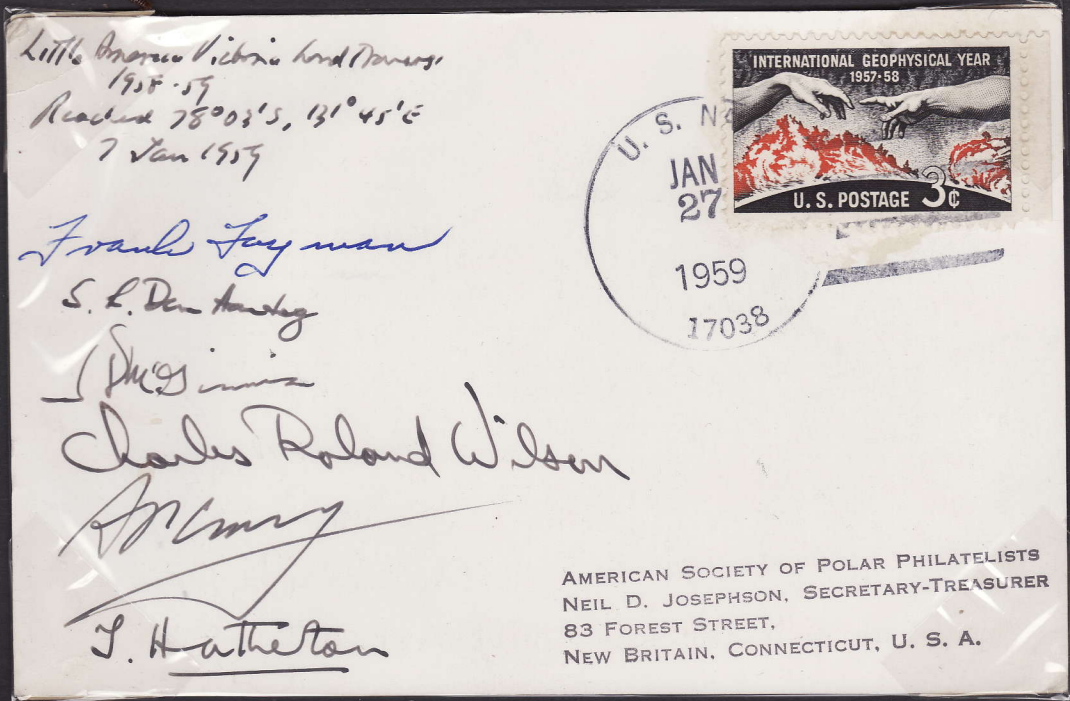 Little America Victoria Land Traverse
1958-59
Reached 78°03'S, 131°45'E
7 Jan 1959
Frank Layman
S. L. Den Hartog
L D McGinnis
Charles Roland Wilson
T. Hatherton
INTERNATIONAL GEOPHYSICAL YEAR
1957·58
U. S. POSTAGE 3¢
U. S. N
JAN
27
1959
17038
AMERICAN SOCIETY OF POLAR PHILATELISTS
NEIL D. JOSEPHSON, SECRETARY-TREASURER
83 FOREST STREET,
NEW BRITAIN, CONNECTICUT, U. S. A.